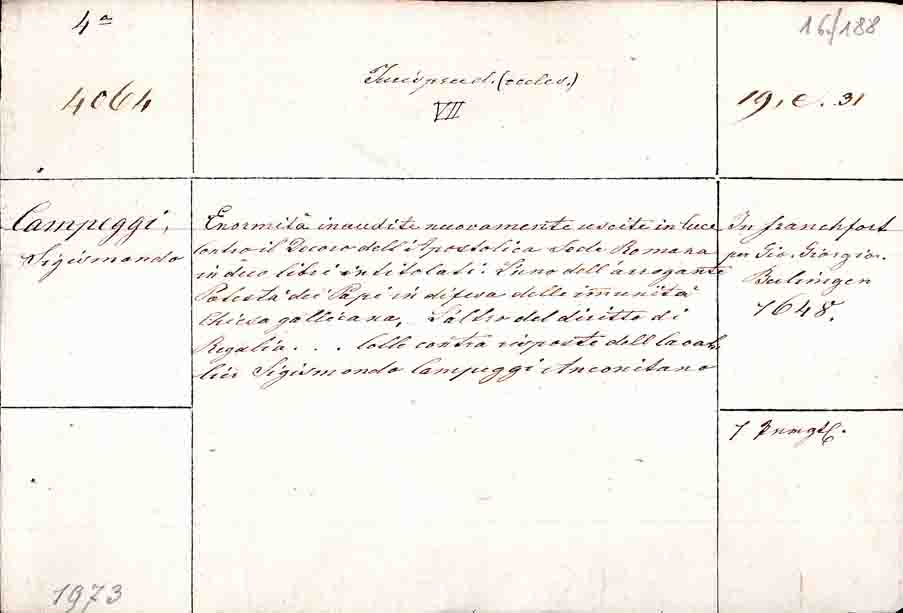 4ª
4064
Jurisprud. (eccles.)
VII
16/188
19. C. 31
Campeggi,
Sigismondo
Enormità inaudite nuovamente uscite in luce
contro il Decoro dell'Apostolica Sede Romana
in due libri intitolati: L'uno dell'arrogante
Potestà dei Papi in difesa delle immunità
Chiesa gallicana, L'altro del diritto di
Regalia... Colle contra risposte dell
Sigismondo Campeggi Anconitano
In Franckfort
per Gio. Giorgio.
Bulingen
1648.
1
1973